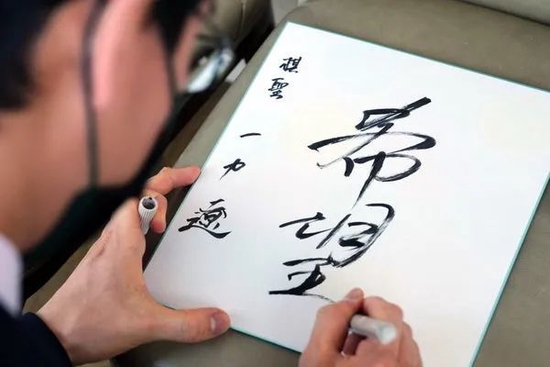 希望
棋聖
一力遼